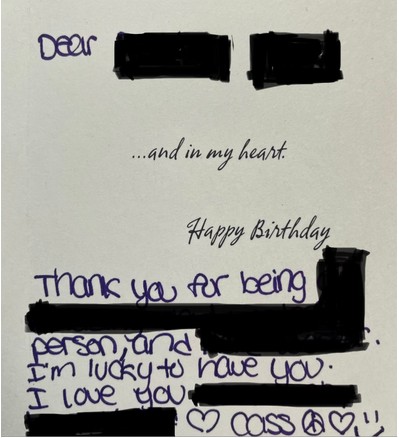 Dear
...and in my heart.
Happy Birthday
Thank you for being
person, and
I'm lucky to have you.
I love you
♡ Cass ☮♡!!